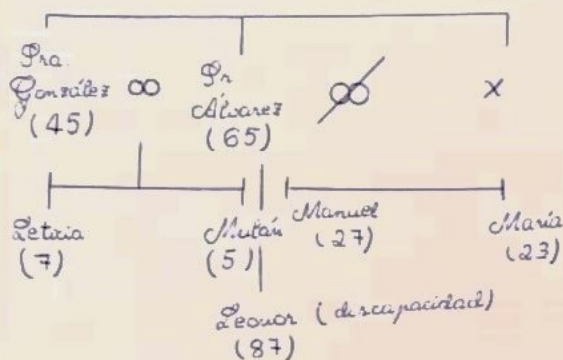 Sra.
González
(45)
Sr
Álvarez
(65)
X
Letizia
(7)
Mulán
(5)
Manuel
(27)
María
(23)
Leonor (discapacidad)
(87)